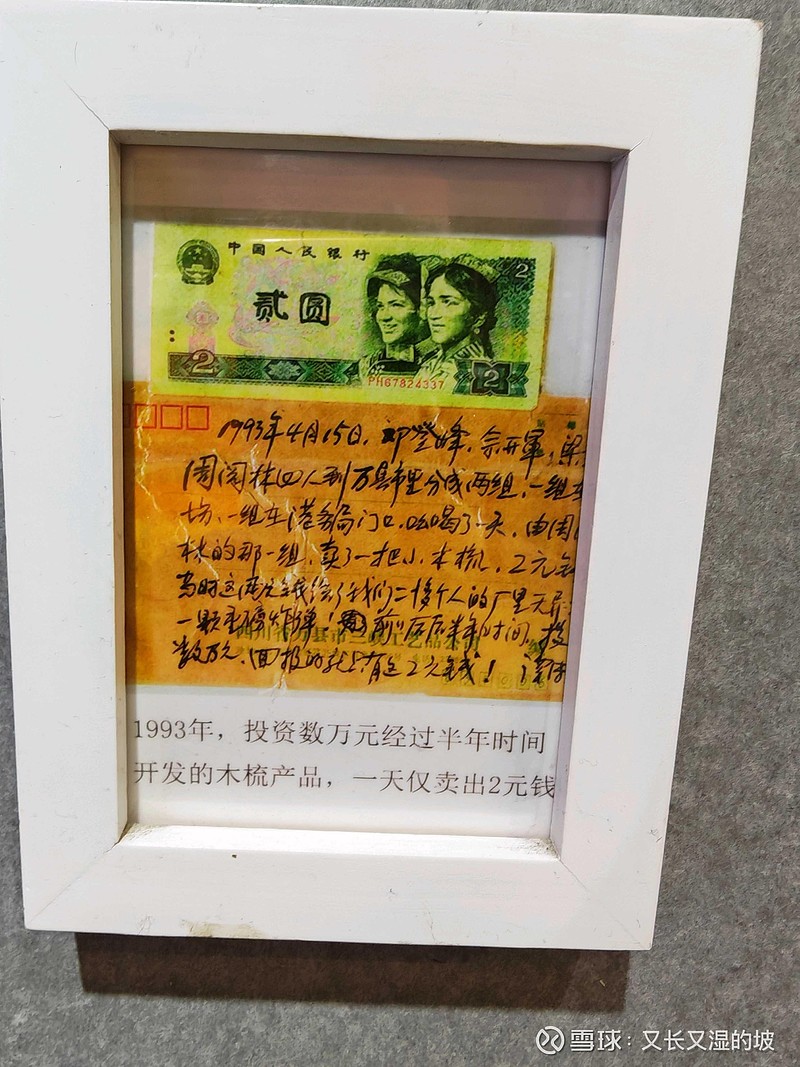 中国人民银行
贰圆
2
2
2
PH67824337
1993年4月15日，邓登峰、宗开军、梁
周阁林四人到万县市里分成两组，一组在
坊，一组在港务局门口，吆喝了一天，由周
林的那一组，卖了一把小木梳，2元钱
当时这两元钱给了我们二十多个人的厂里无异
一颗重磅炸弹！前后后半年时间，投
数万元，回报的就只有这2元钱！
四川省万县市三峡工艺品公司
1993年，投资数万元经过半年时间
开发的木梳产品，一天仅卖出2元钱
雪球：又长又湿的坡